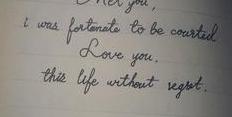 Met you,
i was fortunate to be courted
Love you.
this life without regret.